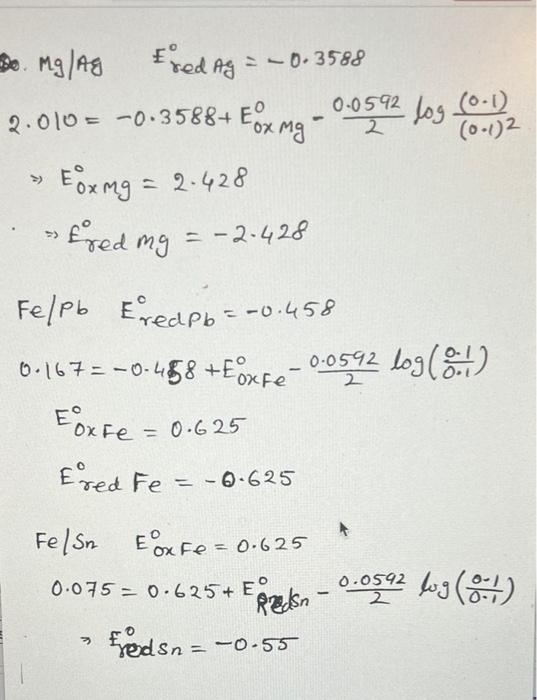 So. Mg/Ag E°red Ag = -0.3588
2.010 = -0.3588 + E°ox Mg - 0.0592/2 log (0.1)/(0.1)2
⇒ E°ox Mg = 2.428
⇒ E°red mg = -2.428
Fe/Pb E°red Pb = -0.458
0.167 = -0.458 + E°ox Fe - 0.0592/2 log(0.1/0.1)
E°ox Fe = 0.625
E°red Fe = -0.625
Fe/Sn E°ox Fe = 0.625
0.075 = 0.625 + E°Redsn - 0.0592/2 log(0.1/0.1)
⇒ E°redsn = -0.55